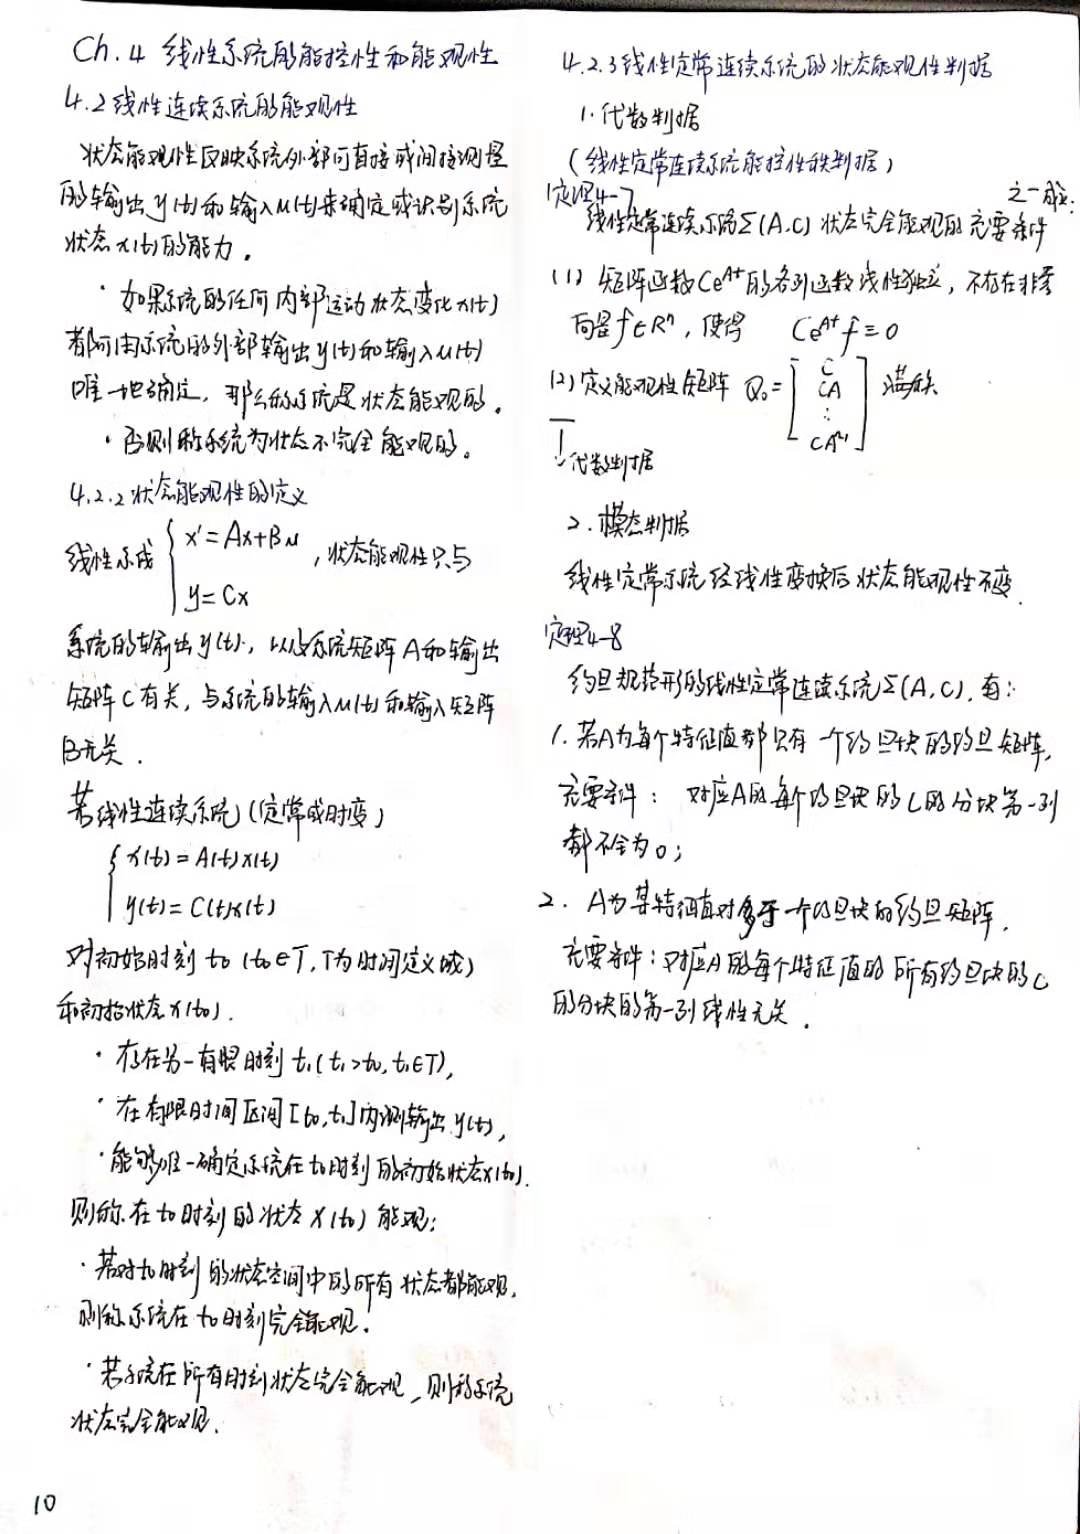 Ch.4 线性系统的能控性和能观性
4.2 线性连续系统的能观性
状态能观性反映系统外部可直接或间接测量
的输出y(t)和输入u(t)来确定或识别系统
状态x(t)的能力。
· 如果系统的任何内部运动状态变化x(t)
都可由系统的外部输出y(t)和输入u(t)
唯一地确定，那么称系统是状态能观的。
· 否则称系统为状态不完全能观的。
4.2.2 状态能观性的定义
线性系统 { x'=Ax+Bu ，状态能观性只与
y=Cx
系统的输出y(t)，以及系统矩阵A和输出
矩阵C有关，与系统的输入u(t)和输入矩阵
B无关.
若线性连续系统(定常或时变)
{ x(t)=A(t)x(t)
y(t)=C(t)x(t)
对初始时刻t₀(t₀∈T,T为时间定义域)
和初始状态x(t₀).
· 存在另一有限时刻t₁(t₁>t₀,t₁∈T),
· 在有限时间区间[t₀,t₁]内测输出y(t),
· 能够唯一确定系统在t₀时刻的初始状态x(t₀).
则称在t₀时刻的状态x(t₀)能观;
· 若对t₀时刻的状态空间中的所有状态都能观,
则称系统在t₀时刻完全能观.
· 若系统在所有时刻状态完全能观，则称系统
状态完全能观.
10
4.2.3 线性定常连续系统的状态能观性判据
1. 代数判据
(线性定常连续系统能控性秩判据)
定理4-7
之一成立:
线性定常连续系统Σ(A,C)状态完全能观的充要条件
(1) 矩阵函数Ce^{At}的各列函数线性独立，不存在非零
向量f∈Rⁿ，使得 Ce^{At}f≡0
(2) 定义能观性矩阵 Q₀=[C CA ⋮ CA^{n-1}] 满秩
代数判据
2. 模态判据
线性定常系统经线性变换后状态能观性不变.
定理4-8
约旦规范形的线性定常连续系统Σ(A,C),有:
1. 若A为每个特征值都只有一个约旦块的约旦矩阵,
充要条件: 对应A的每个约旦块的C的分块第一列
都不全为0;
2. A为某特征值对多于一个约旦块的约旦矩阵,
充要条件:对应A的每个特征值的所有约旦块的C
的分块的第一列线性无关.